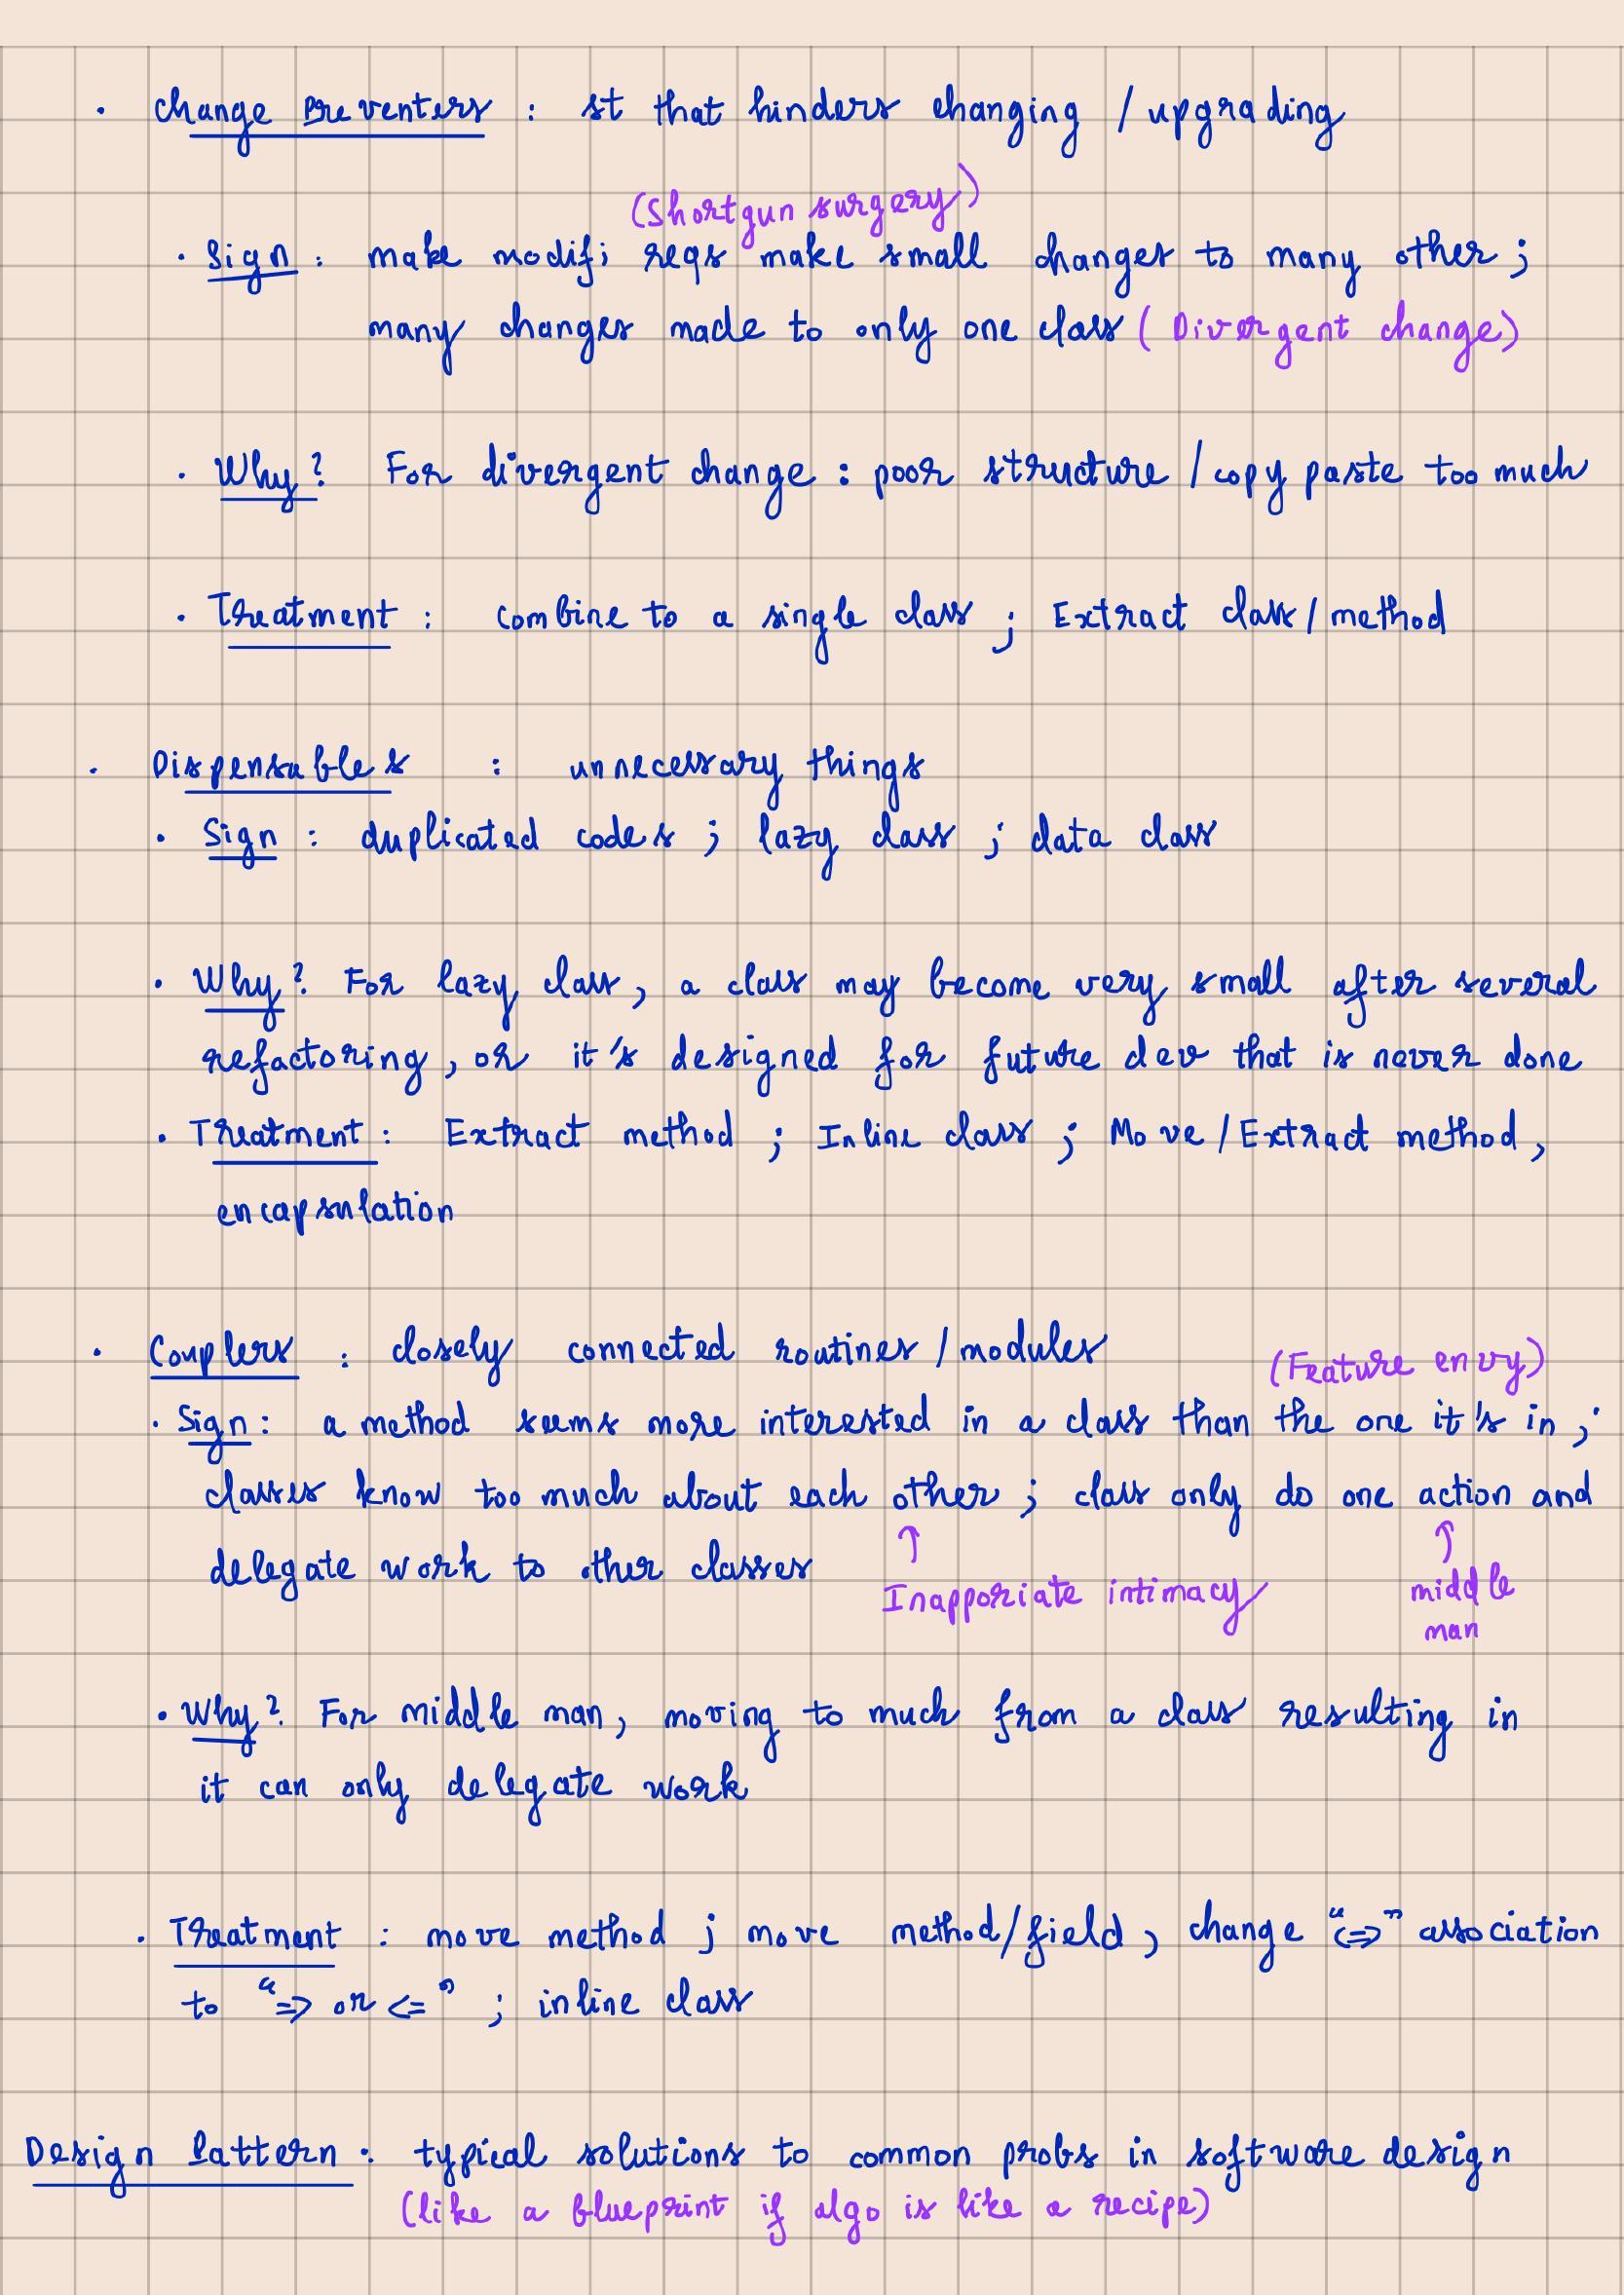 . Change Preventers : st that hinders changing / upgrading
(Shortgun surgery)
. Sign : make modif; reqs make small changes to many other ;
many changes made to only one class ( Divergent change)
. Why ? For divergent change : poor structure / copy paste too much
. Treatment : combine to a single class ; Extract class / method
. Dispensables : unnecessary things
. Sign : duplicated codes ; lazy class ; data class
. Why ? For lazy class , a class may become very small after several
refactoring , or it's designed for future dev that is never done
. Treatment : Extract method ; Inline class ; Move / Extract method ,
encapsulation
. Couplers : closely connected routines / modules
(Feature envy)
. Sign : a method seems more interested in a class than the one it's in ;
classes know too much about each other ; class only do one action and
delegate work to other classes
↑ ↑
Inapporiate intimacy middle
man
. Why ? For middle man , moving to much from a class resulting in
it can only delegate work
. Treatment : move method ; move method / field , change "<=>" association
to "=> or <=" ; inline class
Design Pattern : typical solutions to common probs in software design
(like a blueprint if algo is like a recipe)